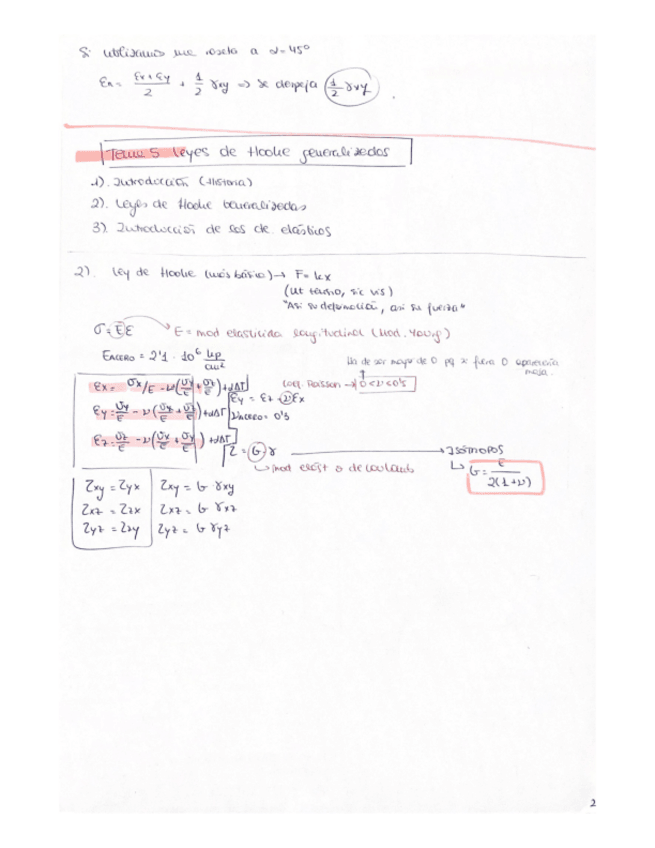 Si utilizamos una roseta a α=45°
εn = (εx+εy)/2 + 1/2 γxy => se despeja (1/2 γxy).
Tema 5 Leyes de Hooke generalizadas
1). Introducción (Historia)
2). Leyes de Hooke Generalizadas
3). Introducción de los de. elásticos
2). Ley de Hooke (más básico) → F = kx
(Ut tensio, sic vis)
"Así su deformación, así su fuerza"
σ = Eε → E = mod elasticida longitudinal (Mod. Young)
EACERO = 2'1 · 10⁶ kp/cm²
Ha de ser mayor de 0 pq x fuera 0 aparecería masa.
εx = σx/E - ν(σy/E + σz/E) + αΔT
coef. Poisson → 0<ν<0'5
εy = σy/E - ν(σx/E + σz/E) + αΔT
εy = εz = νεx
νACERO = 0'3
εz = σz/E - ν(σx/E + σy/E) + αΔT
τ = Gγ → ISÓTROPOS
↳ mod elást o de cortante
↳ G = E/2(1+ν)
τxy = τyx τxy = G γxy
τxz = τzx τxz = G γxz
τyz = τzy τyz = G γyz
2